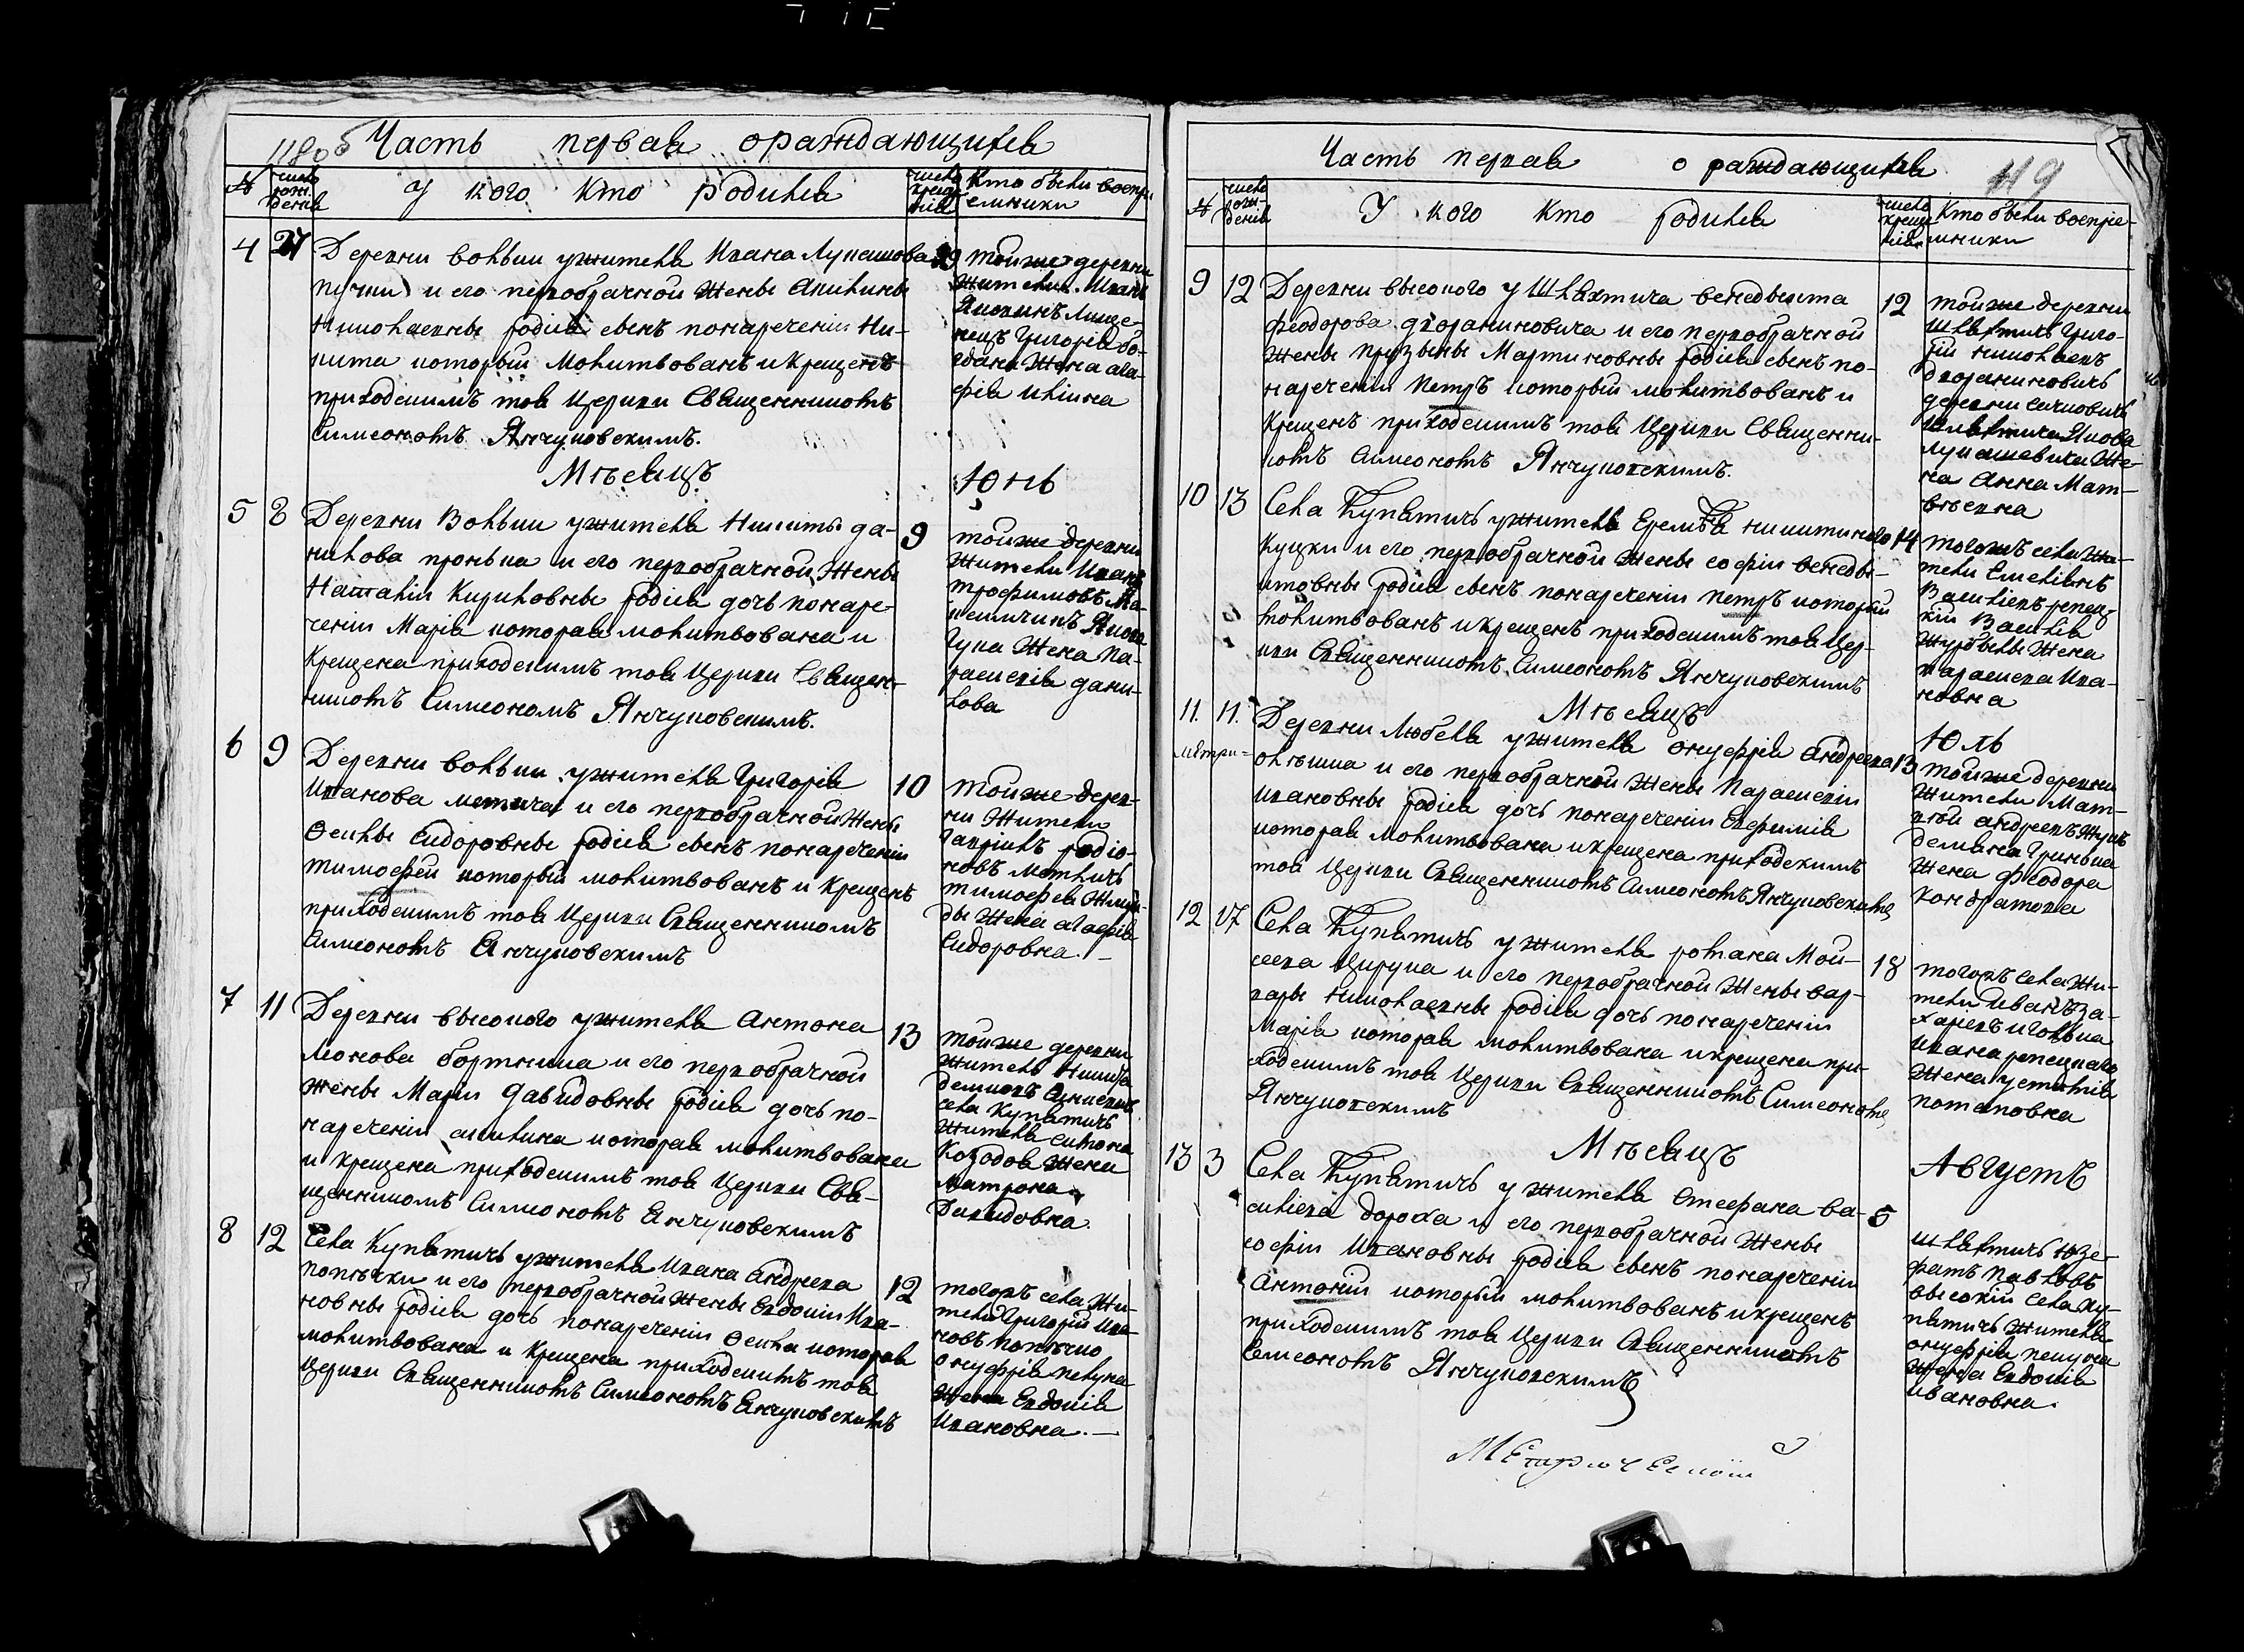 118об Часть первая о раждающихся
№ число рождения У кого кто родился число крещения Кто были восприемники
4 27 Деревни Вольки у жителя Ивана Лукашова 29
и его первобрачной жены Акилины
Николаевны родися сынъ понареченіи Ни-
кита который молитвованъ и крещенъ
приходскимъ тоя Церкви Священникомъ
Симеономъ Янчуковскимъ.
тойже деревни
жители Иванъ
Григорія Бо-
гдана жена Ага-
фія Илiина
Мѣсяцъ Юнь
5 8 Деревни Вольки у жителя Никиты Да- 9
нилова и его первобрачной жены
Наталіи Кириловны родися дочь понаре-
ченіи Марія которая молитвована и
крещена приходскимъ тоя Церкви Священ-
никомъ Симеономъ Янчуковскимъ.
тойже деревни
жители Иванъ
Трофимовъ
жена Па-
раскевія Дани-
лова
6 9 Деревни Вольки у жителя Григорія 10
Иванова и его первобрачной жены
Ѳеклы Сидоровны родися сынъ понареченіи
Тимофей который молитвованъ и крещенъ
приходскимъ тоя Церкви Священникомъ
Симеономъ Янчуковскимъ
тойже дерев-
ни жители
Гавріилъ Родіо-
новъ
Тимофея
жена Агафія
Сидоровна. —
7 11 Деревни Высокого у жителя Антона 13
бортника и его первобрачной
жены Маріи Давидовны родися дочь по-
нареченіи Акилина которая молитвована
и крещена приходскимъ тоя Церкви Свя-
щенникомъ Симеономъ Янчуковскимъ
тойже деревни
житель Никита
села Купятичъ
жителя Симона
Козодоя жена
Матрона
Давидовна.
8 12 Села Купятичъ у жителя Ивана Андреева 12
и его первобрачной жены Евдокіи Ива-
новны родися дочь понареченіи Ѳекла которая
молитвована и крещена приходскимъ тоя
Церкви Священникомъ Симеономъ Янчуковскимъ
тогожъ села жи-
тели Григорій Ива-
новъ
Онуфрія
жена Евдокія
Ивановна. —
Часть первая о раждающихся 119
№ число рождения У кого кто родился число крещения Кто были восприемники
9 12 Деревни Высокого у Шляхтича Венедыкта 12
Феодорова Дворaниновича и его первобрачной
жены Мартиновны родися сынъ по-
нареченіи Петръ который молитвованъ и
крещенъ приходскимъ тоя Церкви Священни-
комъ Симеономъ Янчуковскимъ.
тойже деревни
Шляхтичъ Григо-
рій Николаевъ
Двораниновичъ
деревни
Шляхтича Якова
Лукашевича же-
на Анна Мат-
вѣевна
10 13 Села Купятичъ у жителя Еремѣя Никитина 14
Куцки и его первобрачной жены Софіи Венеды-
ктовны родися сынъ понареченіи Петръ который
молитвованъ и крещенъ приходскимъ тоя Цер-
кви Священникомъ Симеономъ Янчуковскимъ
тогожъ села жи-
тели Емеліянъ
Василіевъ Репец-
кій Василія
жена
Параскева Ива-
новна
Мѣсяцъ Юль
11. 11. Деревни Любеля у жителя Онуфрія Андреева 13
и его первобрачной жены Параскевіи
Ивановны родися дочь понареченіи Евфимія
которая молитвована и крещена приходскимъ
тоя Церкви Священникомъ Симеономъ Янчуковскимъ
Метри=
тойже деревни
жители Мат-
вій Андреевъ
Демяна Гринька
жена Феодора
Кондратова
12 17 Села Купятичъ у жителя Романа Мои- 18
сеева Цирука и его первобрачной жены Вар-
вары Николаевны родися дочь понареченіи
Марія которая молитвована и крещена при-
ходскимъ тоя Церкви Священникомъ Симеономъ
Янчуковскимъ
тогожъ села жи-
тели Иванъ За-
харіевъ
Ивана Репецкаго
жена Устинія
Потаповна
Мѣсяцъ Августъ
13 3 Села Купятичъ у жителя Стефана Ва- 5
силіева Дороха и его первобрачной жены
Софіи Ивановны родися сынъ понареченіи
Антоній который молитвованъ и крещенъ
приходскимъ тоя Церкви Священникомъ
Симеономъ Янчуковскимъ
Шляхтичъ Юзе-
фатъ Павловъ
Высокій села Ку-
пятичъ жителя
Онуфрія
жена Евдокія
Ивановна.